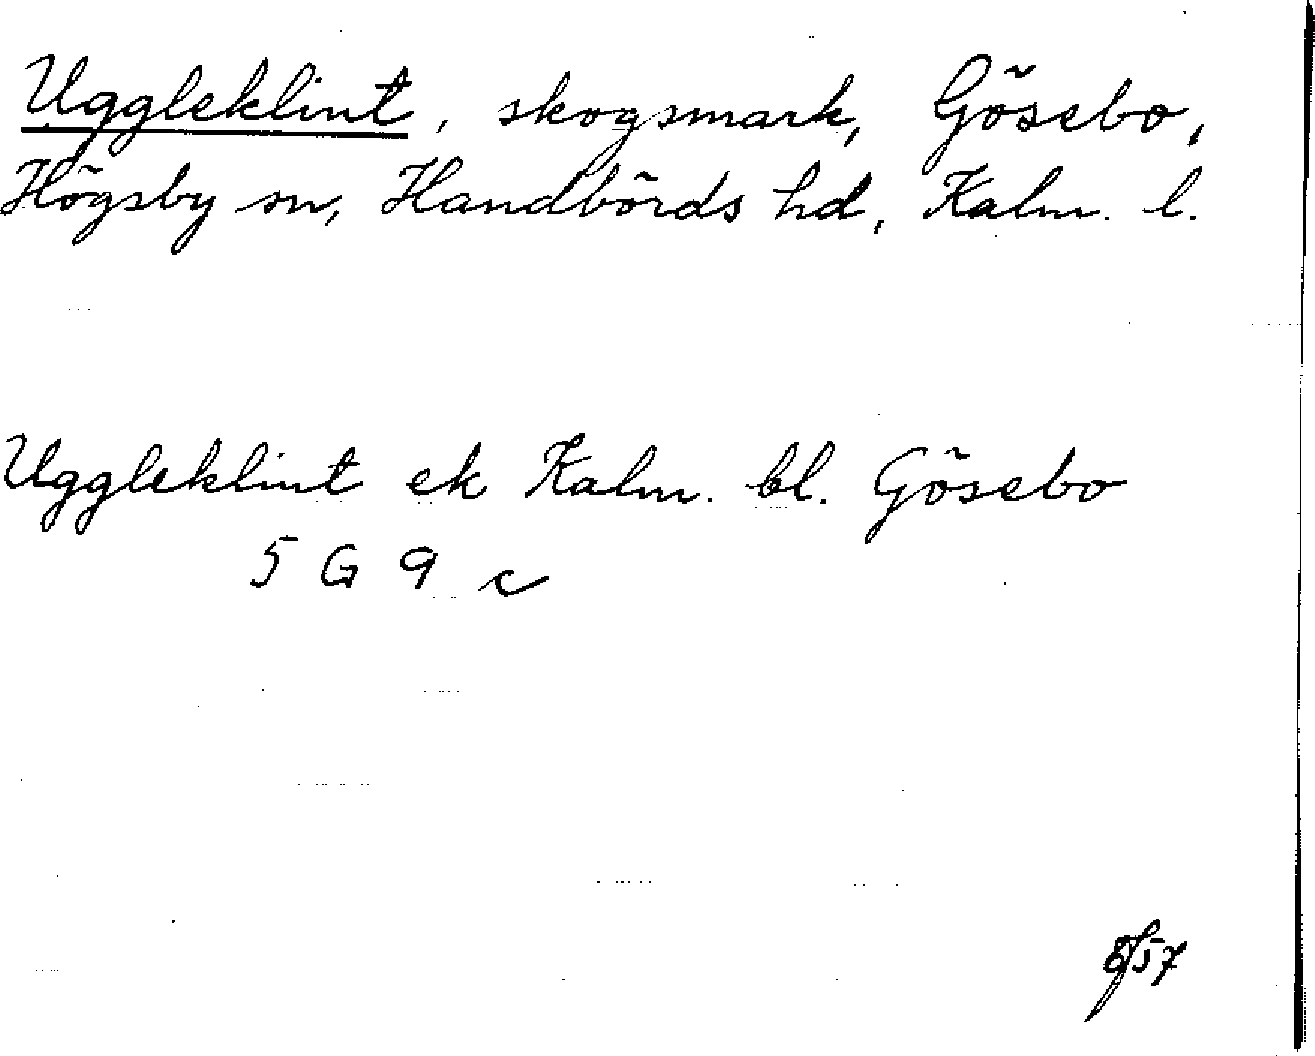 Uggleklint, skogsmark, Gösebo,
Högsby sn, Handbörds hd, Kalm. l.
Uggleklint ek Kalm. bl. Gösebo
5 G 9 c